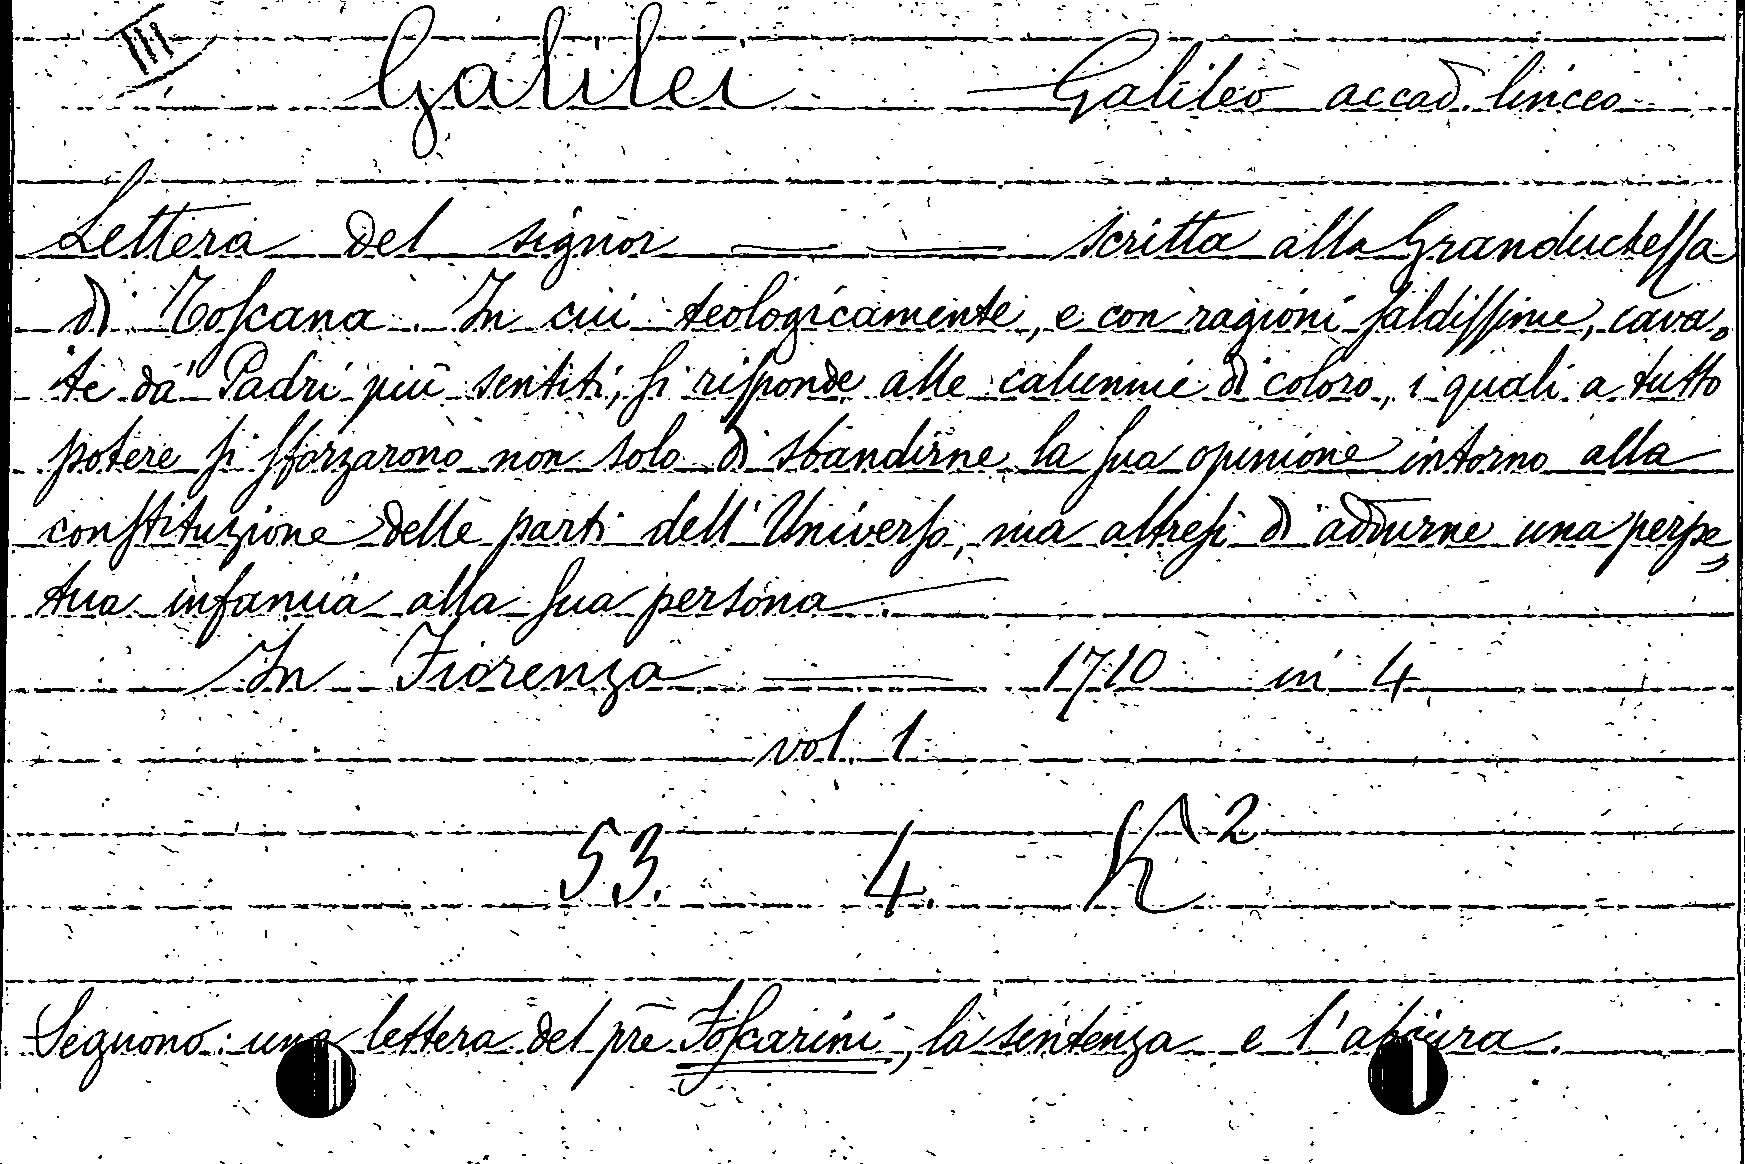 III
Galilei Galileo accad. linceo
Lettera del signor —— —— scritta alla Granduchessa
di Toscana. In cui teologicamente, e con ragioni saldissime, cava„
te da' Padri più sentiti, si risponde alle calunnie di coloro, i quali a tutto
potere si sforzarono non solo di sbandirne la sua opinione intorno alla
constituzione delle parti dell'Universo, ma altresì di addurne una perpe„
tua infamia alla sua persona.
In Fiorenza —— 1710 in 4
vol. 1
53. 4. K²
Seguono: una lettera del pre Foscarini, la sentenza e l'abiura.